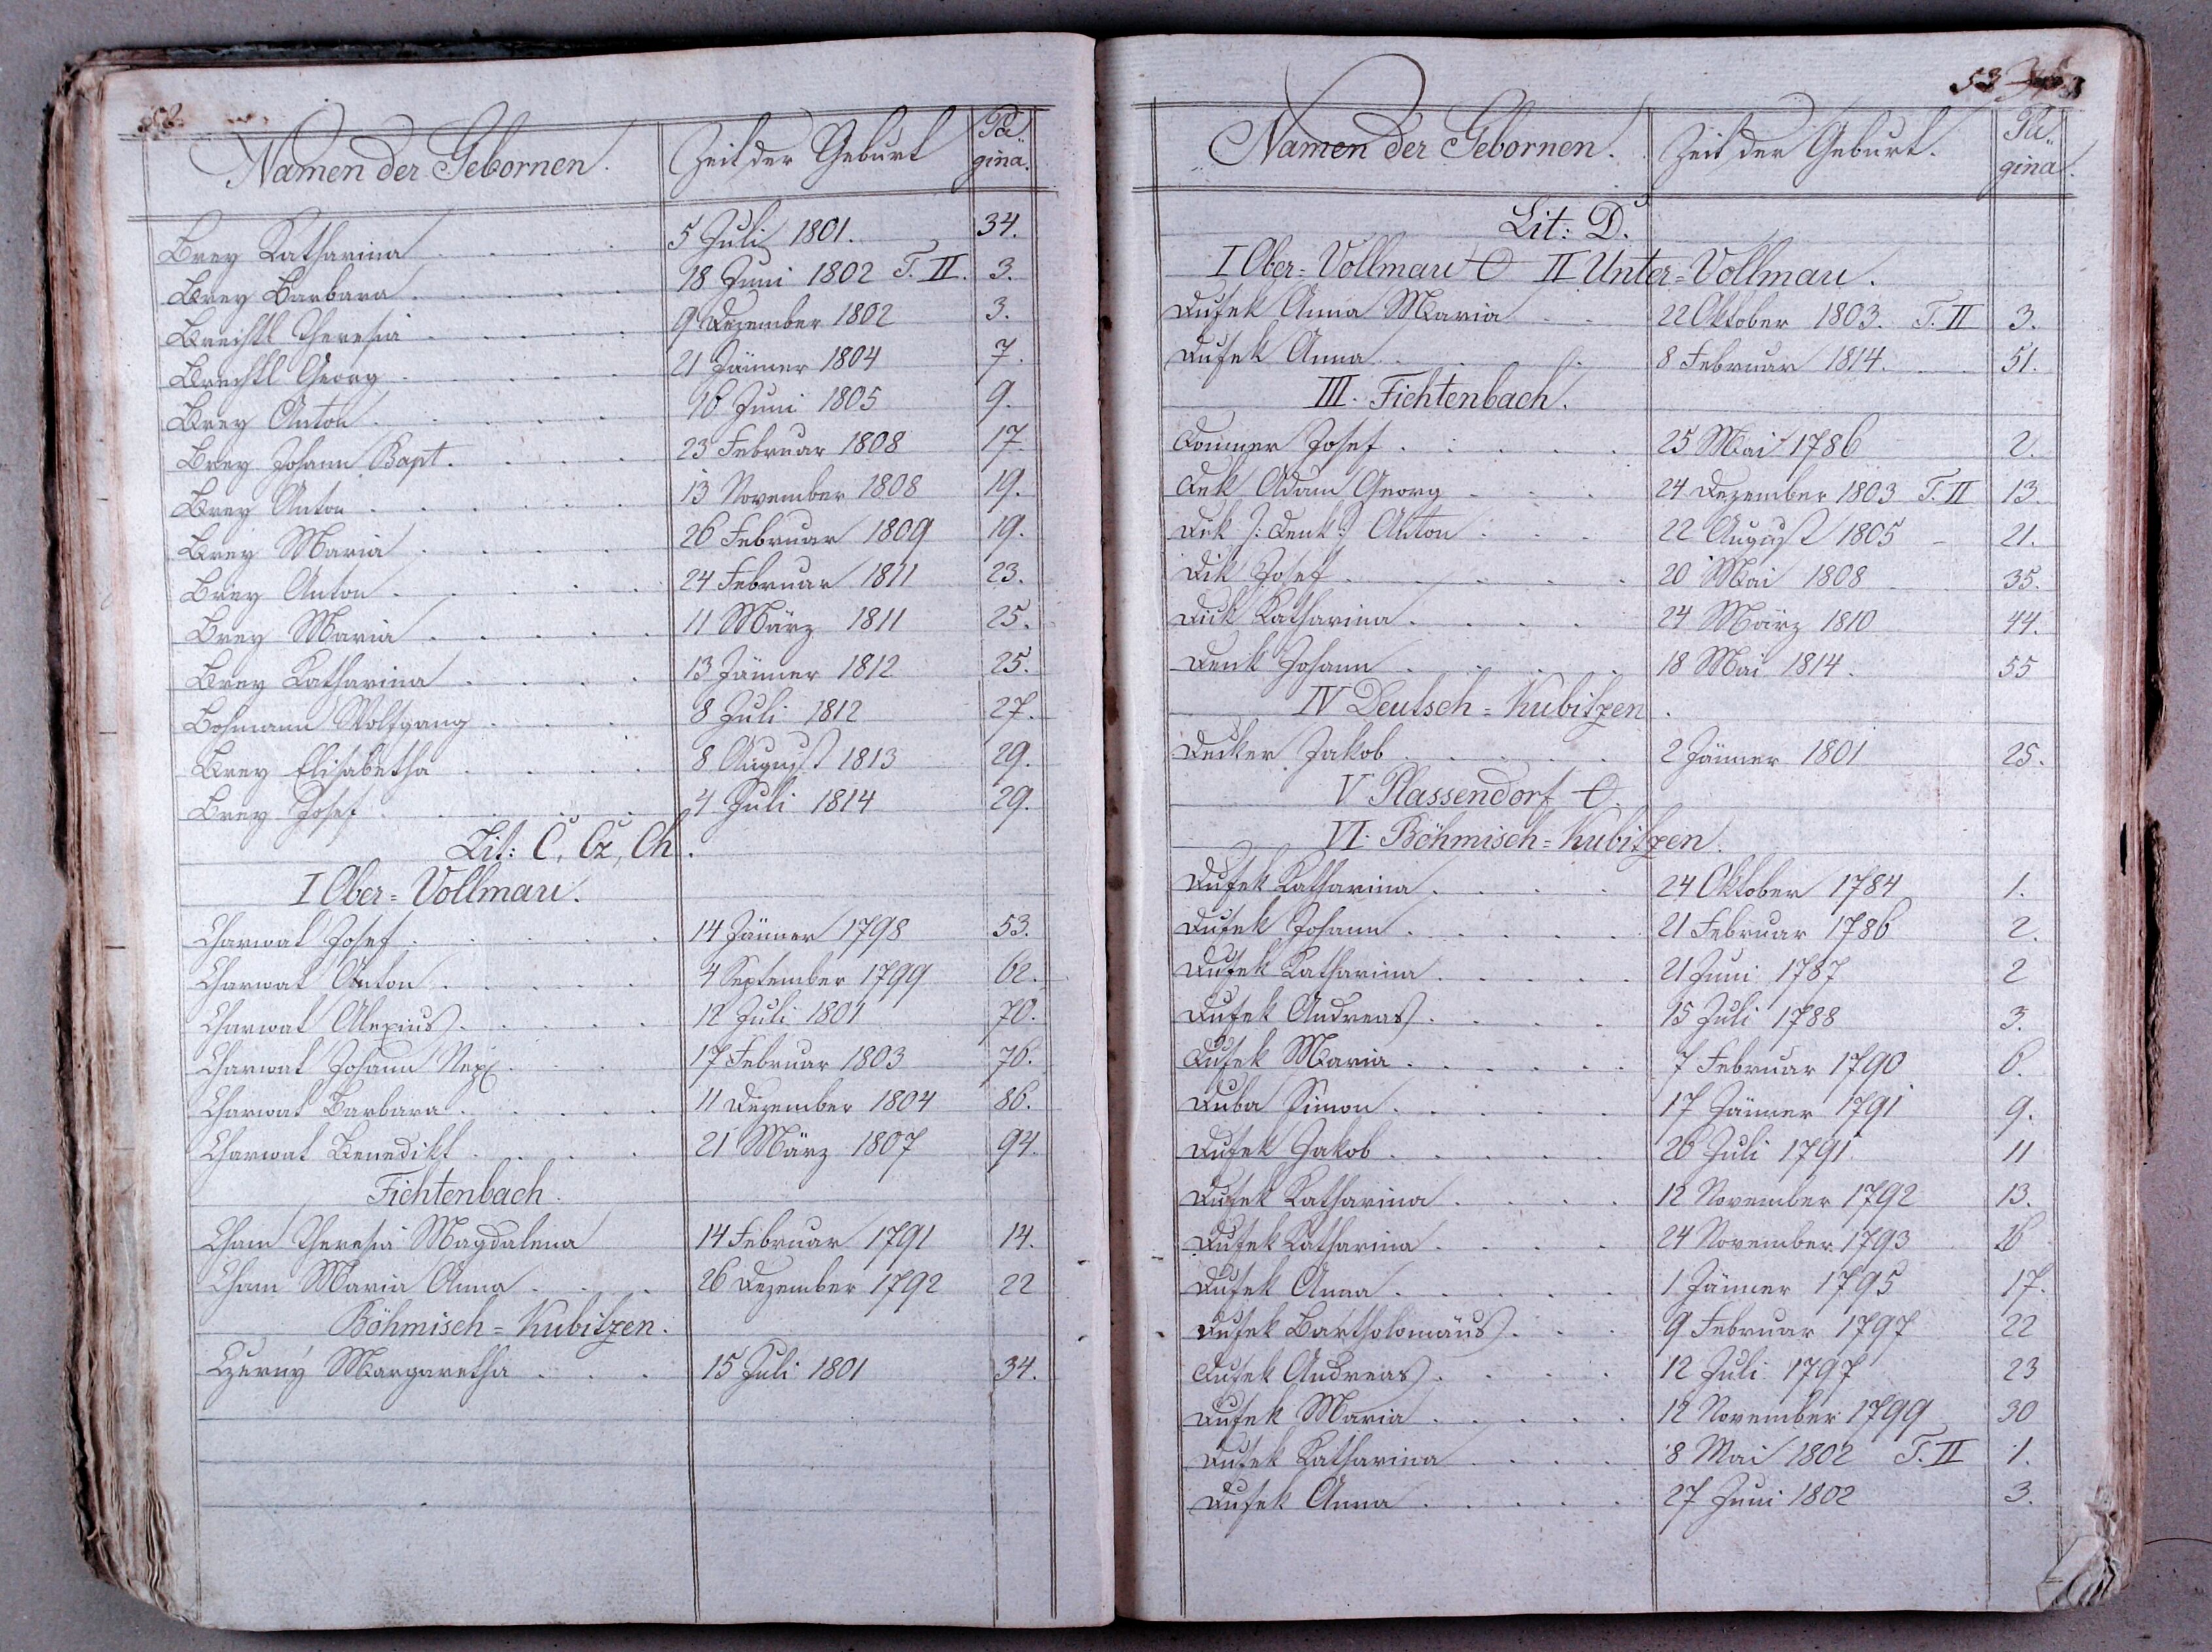 52.
Namen der Gebornen. Zeit der Geburt Pa-
gina.
Brey Katharina 5 Juli 1801. 34.
Brey Barbara 18 Juni 1802 T. II. 3.
Brechtl Theresia 9 Dezember 1802 3.
Brechtl Georg 21 Jänner 1804 7.
Brey Anton 16 Juni 1805 9.
Brey Johann Bapt. 23 Februar 1808 17.
Brey Anton 13 November 1808 19.
Brey Maria 26 Februar 1809 19.
Brey Anton 24 Februar 1811 23.
Brey Maria 11 März 1811 25.
Brey Katharina 13 Jänner 1812 25.
Bohmann Wolfgang 8 Juli 1812 27.
Brey Elisabetha 8 August 1813 29.
Brey Josef 4 Juli 1814 29.
Lit: C, Cz, Ch.
I Ober=Vollmau.
Charwat Josef 14 Jänner 1798 53.
Charwat Anton 4 September 1799 62.
Charwat Alexius 12 Juli 1801 70.
Charwat Johann Nep. 17 Februar 1803 76.
Charwat Barbara 11 Dezember 1804 86.
Charwat Benedikt 21 März 1807 94.
Fichtenbach.
Cham Theresia Magdalena 14 Februar 1791 14.
Cham Maria Anna 26 Dezember 1792 22
Böhmisch=Kubitzen.
Czerný Margaretha 15 Juli 1801 34.
53
Namen der Gebornen. Zeit der Geburt. Pa-
gina.
Lit: D.
I Ober=Vollmau O II Unter=Vollmau.
Dufek Anna Maria 22 Oktober 1803. T. II 3.
Dufek Anna 8 Februar 1814. 51.
III. Fichtenbach.
Josef 25 Mai 1786 2.
Dek Adam Georg 24 Dezember 1803 T. II 13
Dik /: Denk :/ Anton 22 August 1805 21.
Dik Josef 20 Mai 1808 35.
Dick Katharina 24 März 1810 44.
Denk Johann 18 Mai 1814. 55
IV Deutsch=Kubitzen.
Decker Jakob 2 Jänner 1801 25.
V Plassendorf O.
VI. Böhmisch=Kubitzen.
Dufek Katharina 24 Oktober 1784 1.
Dufek Johann 21 Februar 1786 2.
Dufek Katharina 21 Juni 1787 2
Dufek Andreas 15 Juli 1788 3.
Dufek Maria 7 Februar 1790 6.
Duba Simon 17 Jänner 1791 9.
Dufek Jakob 26 Juli 1791 11
Dufek Katharina 12 November 1792 13.
Dufek Katharina 24 November 1793 16
Dufek Anna 1 Jänner 1795 17.
Dufek Bartholomäus 9 Februar 1797 22
Dufek Andreas 12 Juli 1797 23
Dufek Maria 12 November 1799 30
Dufek Katharina 8 Mai 1802 T. II 1.
Dufek Anna 27 Juni 1802 3.